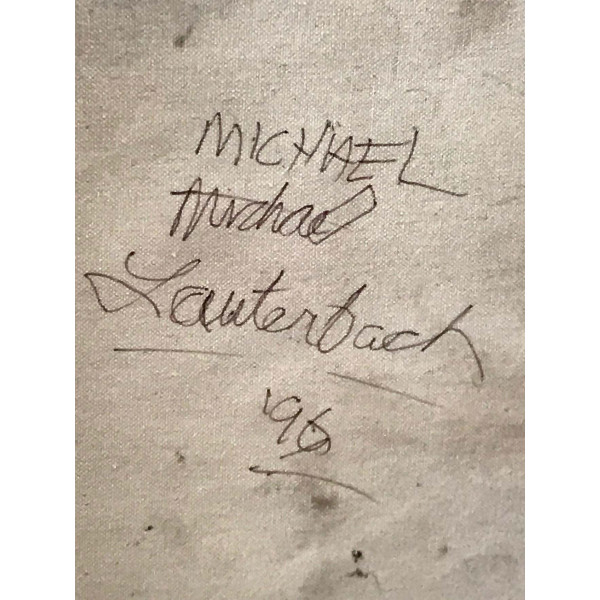 MICHAEL
Michael
Lauterbach
'96